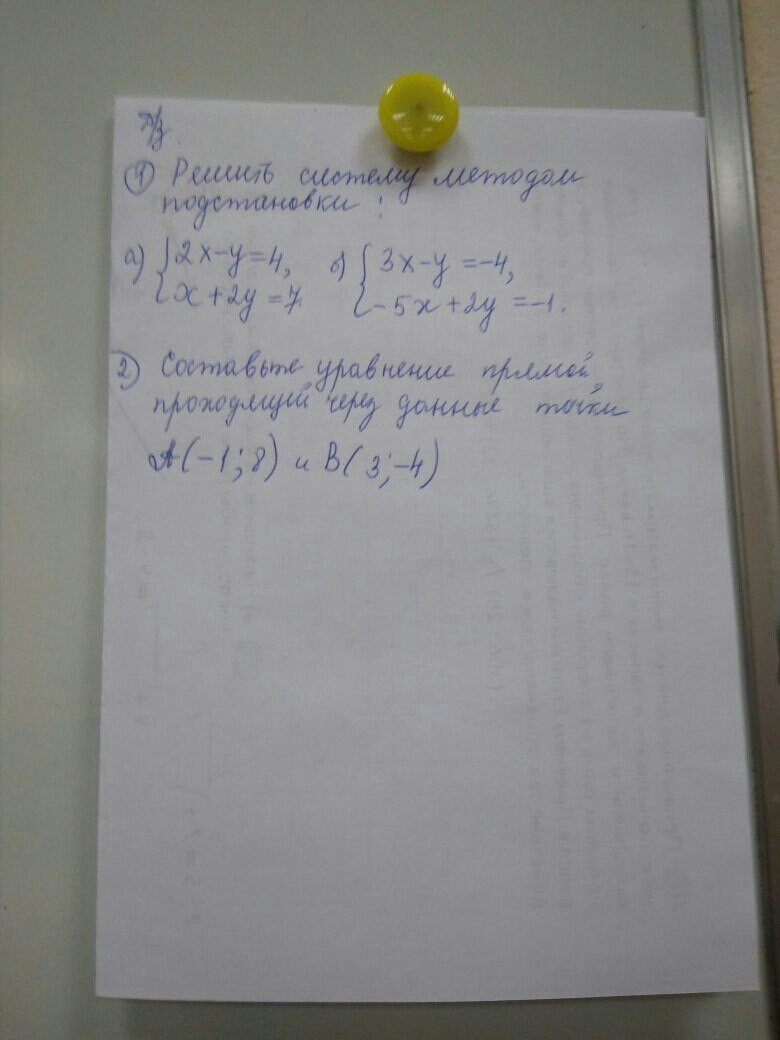 Д/з
① Решить систему методом
подстановки:
а) { 2x-y=4, б) { 3x-y=-4,
x+2y=7. -5x+2y=-1.
2) Составьте уравнение прямой,
проходящий через данные точки
А(-1;8) и В(3;-4)